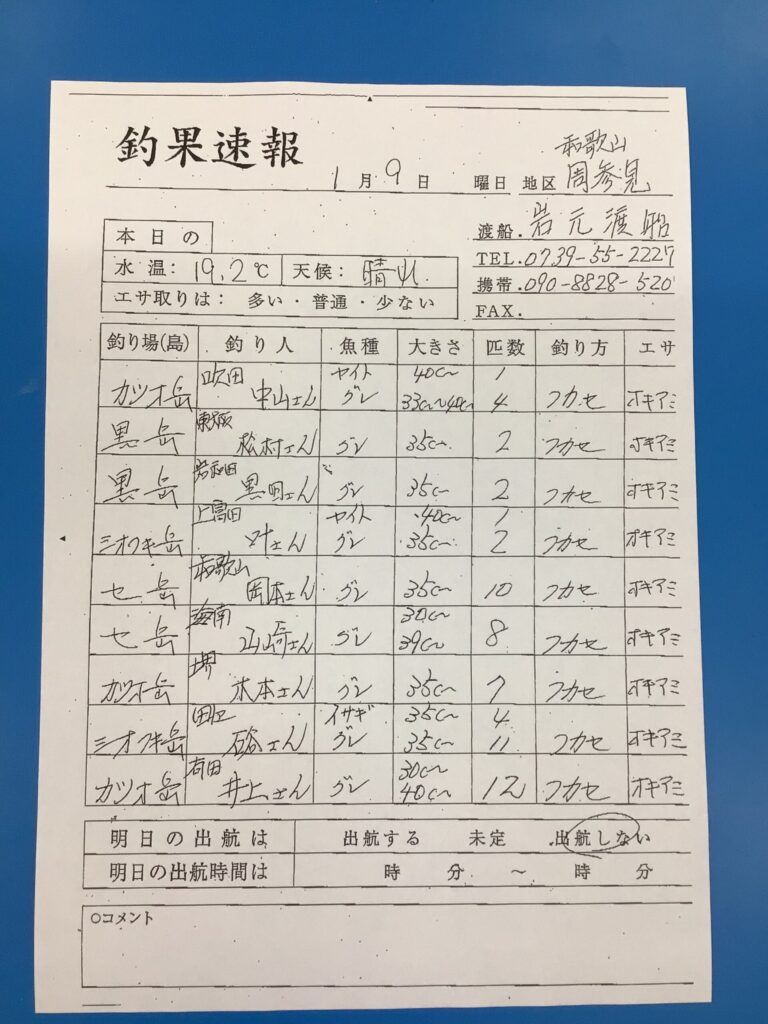 釣果速報
和歌山
1月9日 曜日 地区 周参見
渡船. 岩元渡船
本日の
TEL.0739-55-2227
水温: 19.2℃ 天候: 晴れ
携帯.090-8828-520
エサ取りは: 多い・普通・少ない
FAX.
釣り場(島) 釣り人 魚種 大きさ 匹数 釣り方 エサ
吹田 ヤイト 40cm 1
カツオ岳 中山さん グレ 33cm〜40cm 4 フカセ オキアミ
東大阪
黒岳 松村さん グレ 35cm 2 フカセ オキアミ
岸和田
黒岳 黒田さん グレ 35cm 2 フカセ オキアミ
上富田 ヤイト 40cm 1
シオフキ岳 叶さん グレ 35cm 2 フカセ オキアミ
和歌山
セ岳 岡本さん グレ 35cm 10 フカセ オキアミ
海南 30cm
セ岳 山崎さん グレ 39cm 8 フカセ オキアミ
堺
カツオ岳 木本さん グレ 35cm 7 フカセ オキアミ
田辺 イサギ 35cm 4
シオフキ岳 石谷さん グレ 35cm 11 フカセ オキアミ
有田 30cm
カツオ岳 井上さん グレ 40cm 12 フカセ オキアミ
明日の出航は 出航する 未定 出航しない
明日の出航時間は 時 分 〜 時 分
○コメント